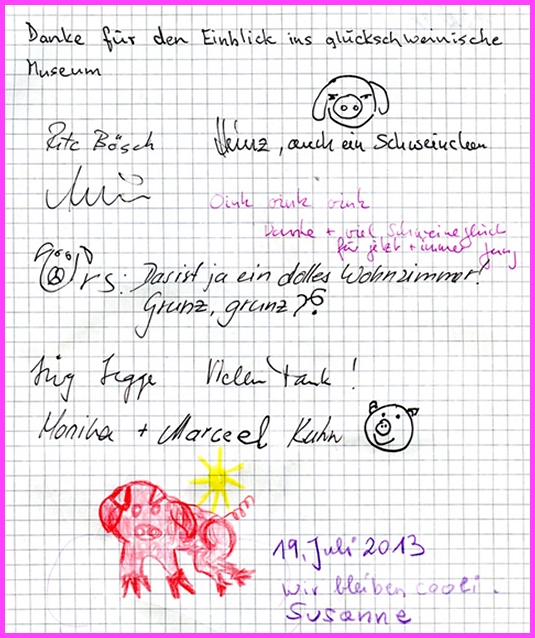 Danke für den Einblick ins glücksschweinische
Museum
Rita Bösch
Heinz, auch ein Schweinchen
Oink oink oink
Danke + viel Schweineglück
für jetzt + immer Jenny
rs: Das ist ja ein dolles Wohnzimmer!
Grunz, grunz
Vielen Dank!
Monika + Marceel Kuhn
19. Juli 2013
wir bleiben cooli.
Susanne